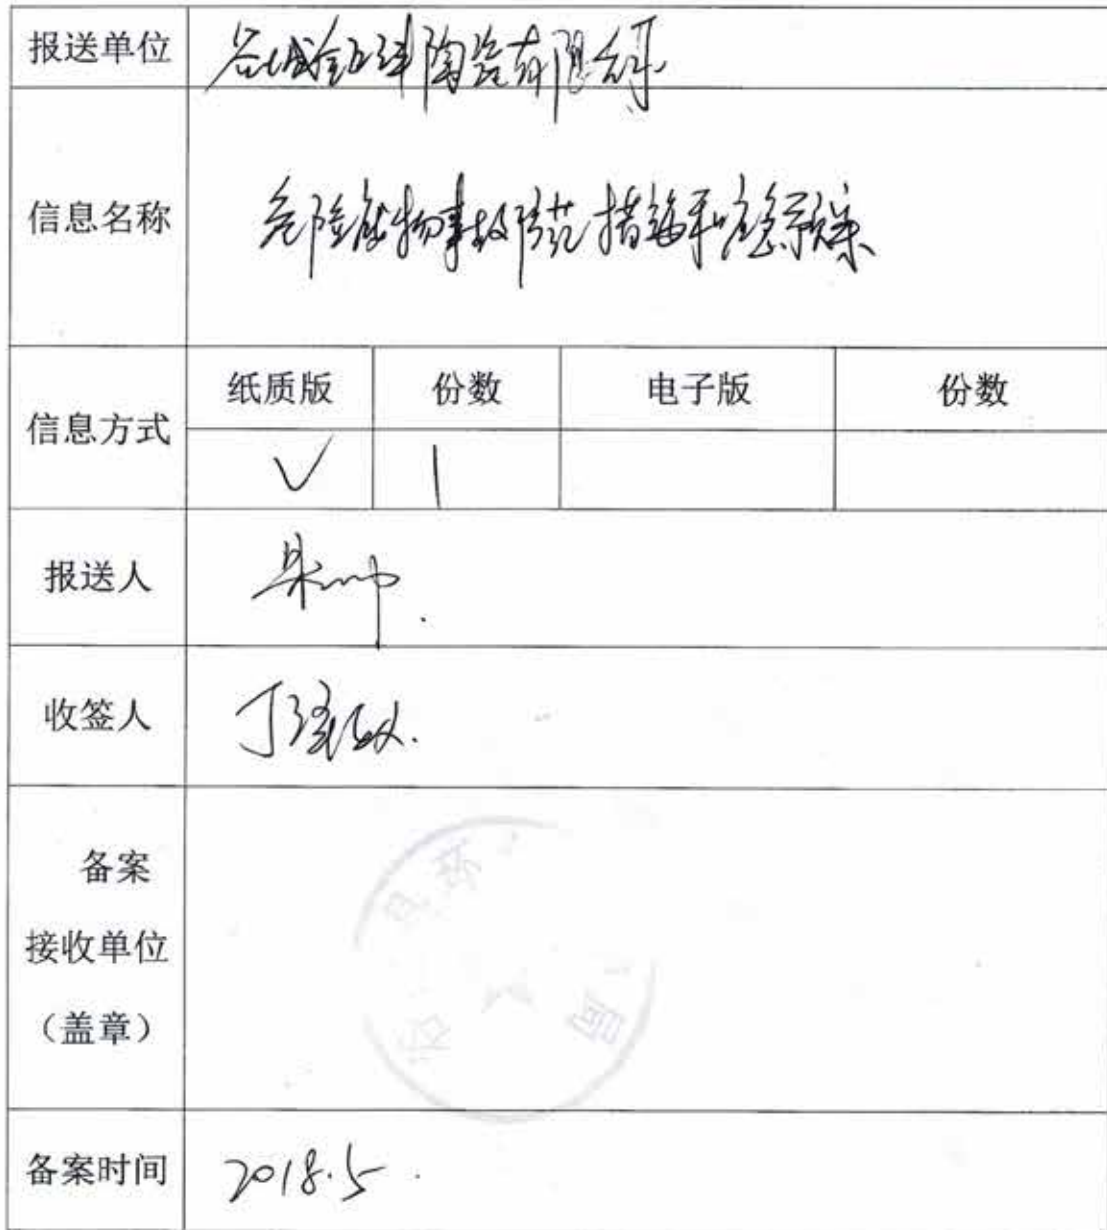 报送单位 谷城金洋陶瓷有限公司
信息名称 危险废物事故防范措施和应急预案
信息方式 纸质版 份数 电子版 份数
√ 1
报送人
收签人 丁
备案
接收单位
（盖章）
谷 县 环 局
备案时间 2018.5.